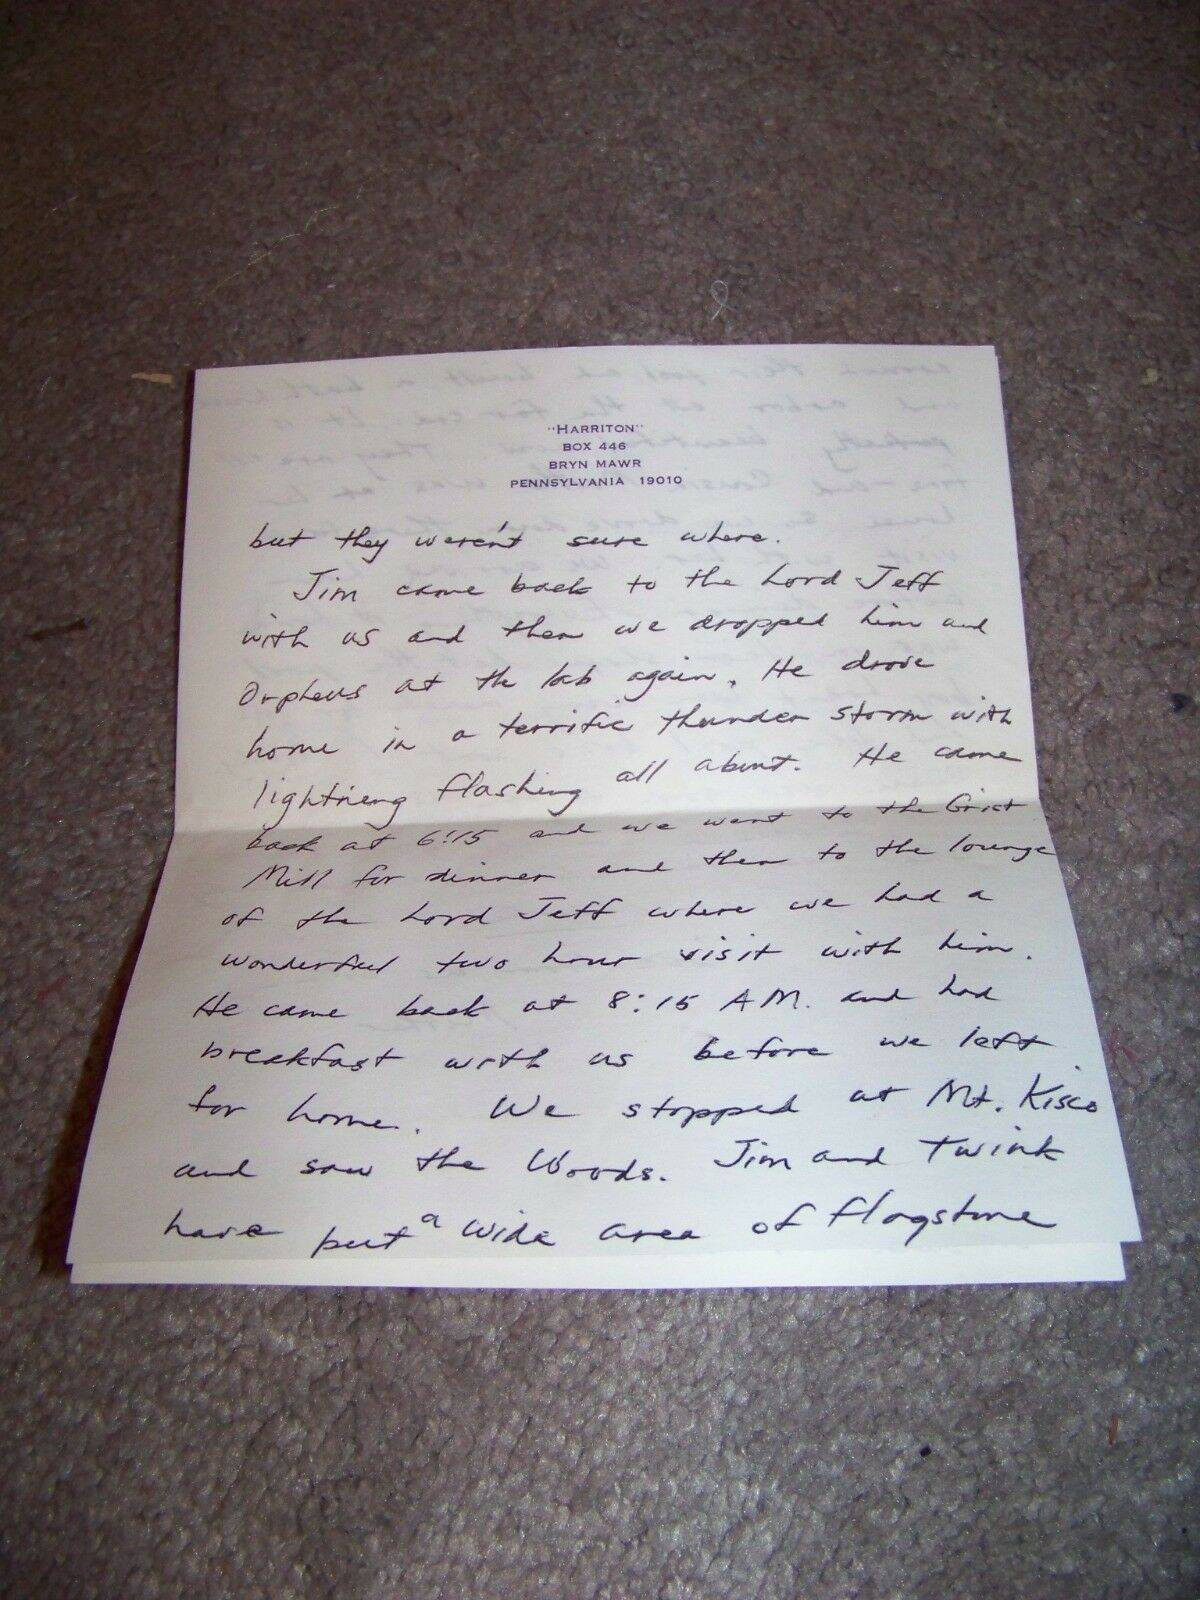 "HARRITON"
BOX 446
BRYN MAWR
PENNSYLVANIA 19010
but they weren't sure where.
Jim came back to the Lord Jeff
with us and then we dropped him and
Orpheus at the lab again. He drove
home in a terrific thunder storm with
lightning flashing all about. He came
back at 6:15 and we went to the Grist
Mill for dinner and then to the lounge
of the Lord Jeff where we had a
wonderful two hour visit with him.
He came back at 8:15 A.M. and had
breakfast with us before we left
for home. We stopped at Mt. Kisco
and saw the Woods. Jim and Twink
have put a wide area of flagstone